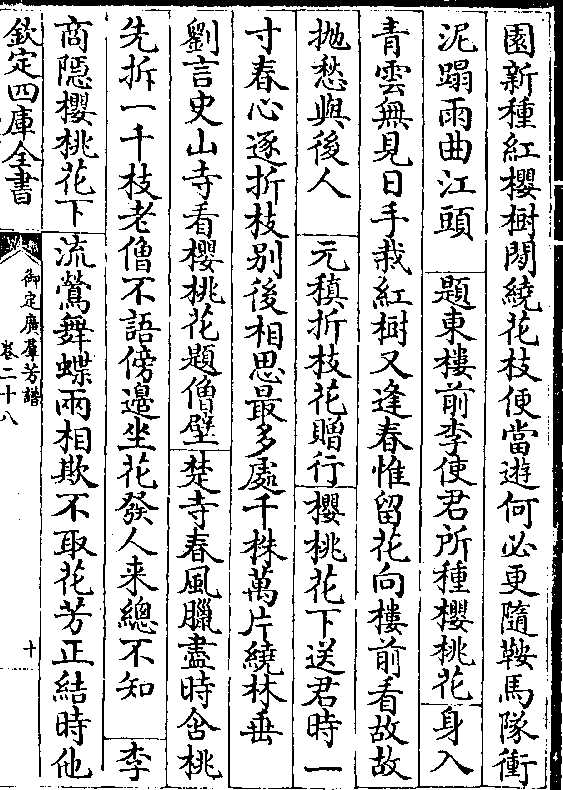 園新種紅櫻樹閒繞花枝便當逰何必更隨鞍馬隊衝
泥蹋雨曲江頭　題東樓前李使君所種櫻桃花　身入
青雲無見日手栽紅樹又逢春惟留花向樓前看故故
抛愁與後人　元稹折枝花贈行　櫻桃花下送君時一
寸春心逐折枝别後相思最多處千株萬片繞林垂
劉言史山寺看櫻桃花題僧壁　楚寺春風臘盡時含桃
先拆一千枝老僧不語傍邊坐花發人来總不知　李
商隠櫻桃花下　流鶯舞蝶兩相欺不取花芳正結時他
欽定四庫全書
御定廣羣芳譜
卷二十八
十